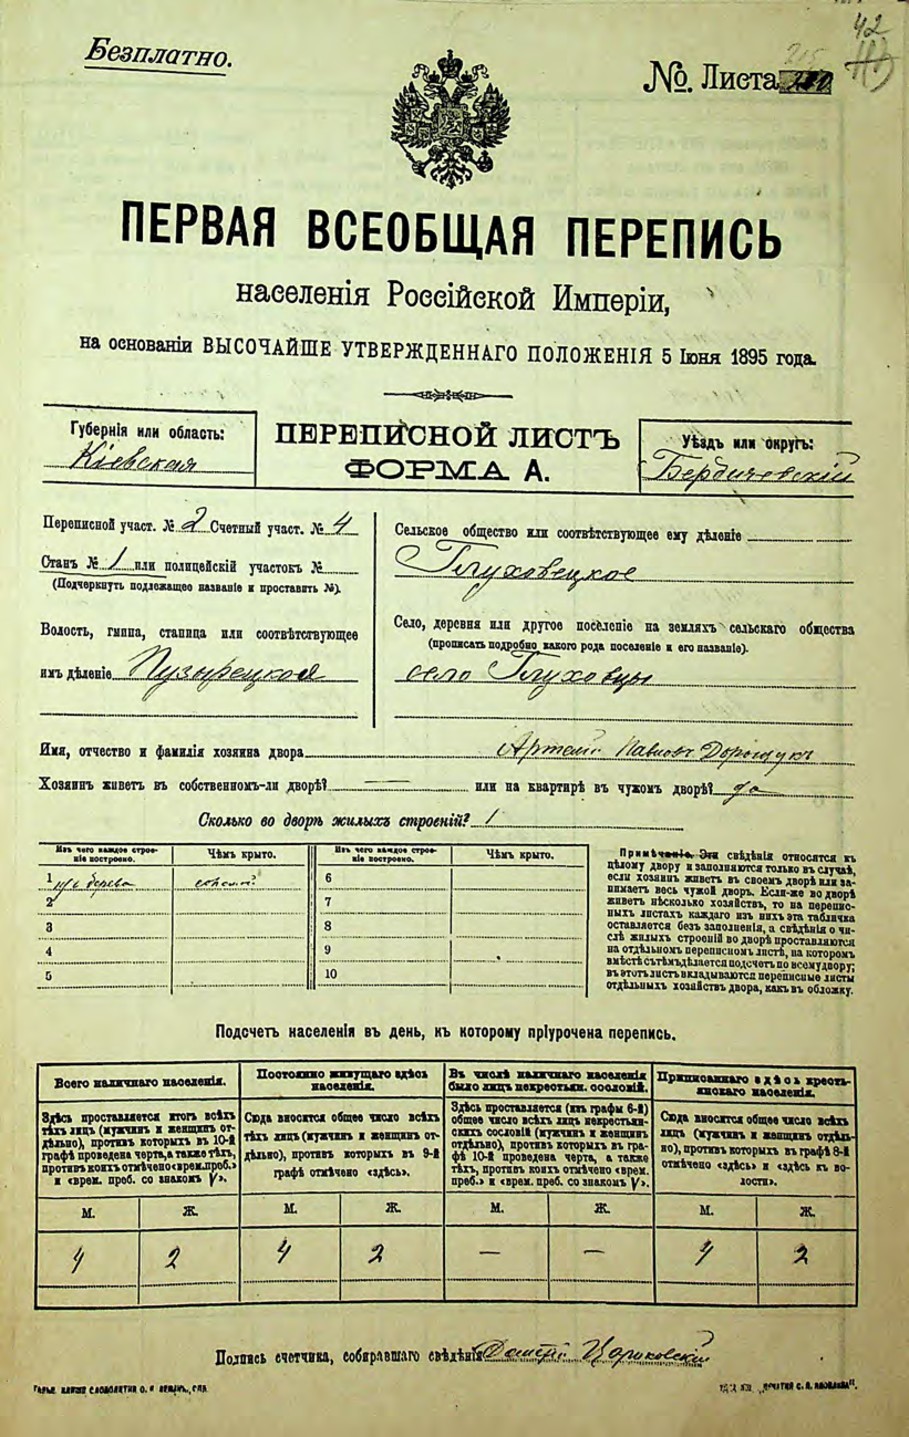 42
Безплатно.
№. Листа
ПЕРВАЯ ВСЕОБЩАЯ ПЕРЕПИСЬ
населенія Россійской Имперіи,
на основаніи ВЫСОЧАЙШЕ УТВЕРЖДЕННАГО ПОЛОЖЕНІЯ 5 Іюня 1895 года.
Губернія или область:
Кіевская
ПЕРЕПИСНОЙ ЛИСТЪ
ФОРМА А.
Уѣздъ или округъ:
Бердичевскій
Переписной участ. № 2 Счетный участ. № 4
Станъ № 1 или полицейскій участокъ №
(Подчеркнуть подлежащее названіе и проставить №).
Волость, гмина, станица или соотвѣтствующее
имъ дѣленіе Пузырецкая
Сельское общество или соотвѣтствующее ему дѣленіе
Глуховецкое
Село, деревня или другое поселеніе на земляхъ сельскаго общества
(прописать подробно какого рода поселеніе и его названіе).
село Глуховцы
Имя, отчество и фамилія хозяина двора Артемъ Павловъ Дорощукъ
Хозяинъ живетъ въ собственномъ-ли дворѣ? — или на квартирѣ въ чужомъ дворѣ? да
Сколько во дворѣ жилыхъ строеній? 1
Изъ чего каждое строе-
ніе построено.
Чѣмъ крыто.
1 изъ дерева
2
3
4
5
Изъ чего каждое строе-
ніе построено.
Чѣмъ крыто.
6
7
8
9
10
Примѣчаніе. Эти свѣдѣнія относятся къ
цѣлому двору и заполняются только въ случаѣ,
если хозяинъ живетъ въ своемъ дворѣ или за-
нимаетъ весь чужой дворъ. Если-же во дворѣ
живетъ нѣсколько хозяйствъ, то на перепис-
ныхъ листахъ каждаго изъ нихъ эта табличка
оставляется безъ заполненія, а свѣдѣнія о чи-
слѣ жилыхъ строеній во дворѣ проставляются
на отдѣльномъ переписномъ листѣ, на которомъ
вмѣстѣ съ тѣмъ дѣлается подсчетъ по всему двору;
въ этотъ листъ вкладываются переписные листы
отдѣльныхъ хозяйствъ двора, какъ въ обложку.
Подсчетъ населенія въ день, къ которому пріурочена перепись.
Всего наличнаго населенія.
Здѣсь проставляется итогъ всѣхъ
тѣхъ лицъ (мужчинъ и женщинъ от-
дѣльно), противъ которыхъ въ 10-й
графѣ проведена черта, а также тѣхъ,
противъ коихъ отмѣчено «врем. преб.»
и «врем. преб. со знакомъ V».
Постоянно живущаго здѣсь
населенія.
Сюда вносится общее число всѣхъ
тѣхъ лицъ (мужчинъ и женщинъ от-
дѣльно), противъ которыхъ въ 9-й
графѣ отмѣчено «здѣсь».
Въ числѣ наличнаго населенія
было лицъ некрестьян. сословій.
Здѣсь проставляется (изъ графы 6-й)
общее число всѣхъ лицъ некрестьян-
скихъ сословій (мужчинъ и женщинъ
отдѣльно), противъ которыхъ въ гра-
фѣ 10-й проведена черта, а также
тѣхъ, противъ коихъ отмѣчено «врем.
преб.» и «врем. преб. со знакомъ V».
Приписаннаго здѣсь кресть-
янскаго населенія.
Сюда вносится общее число всѣхъ
лицъ (мужчинъ и женщинъ отдѣль-
но), противъ которыхъ въ графѣ 8-й
отмѣчено «здѣсь» и «здѣсь къ во-
лости».
М. Ж. М. Ж. М. Ж. М. Ж.
4 2 4 2 — — 4 2
Подпись счетчика, собиравшаго свѣдѣнія